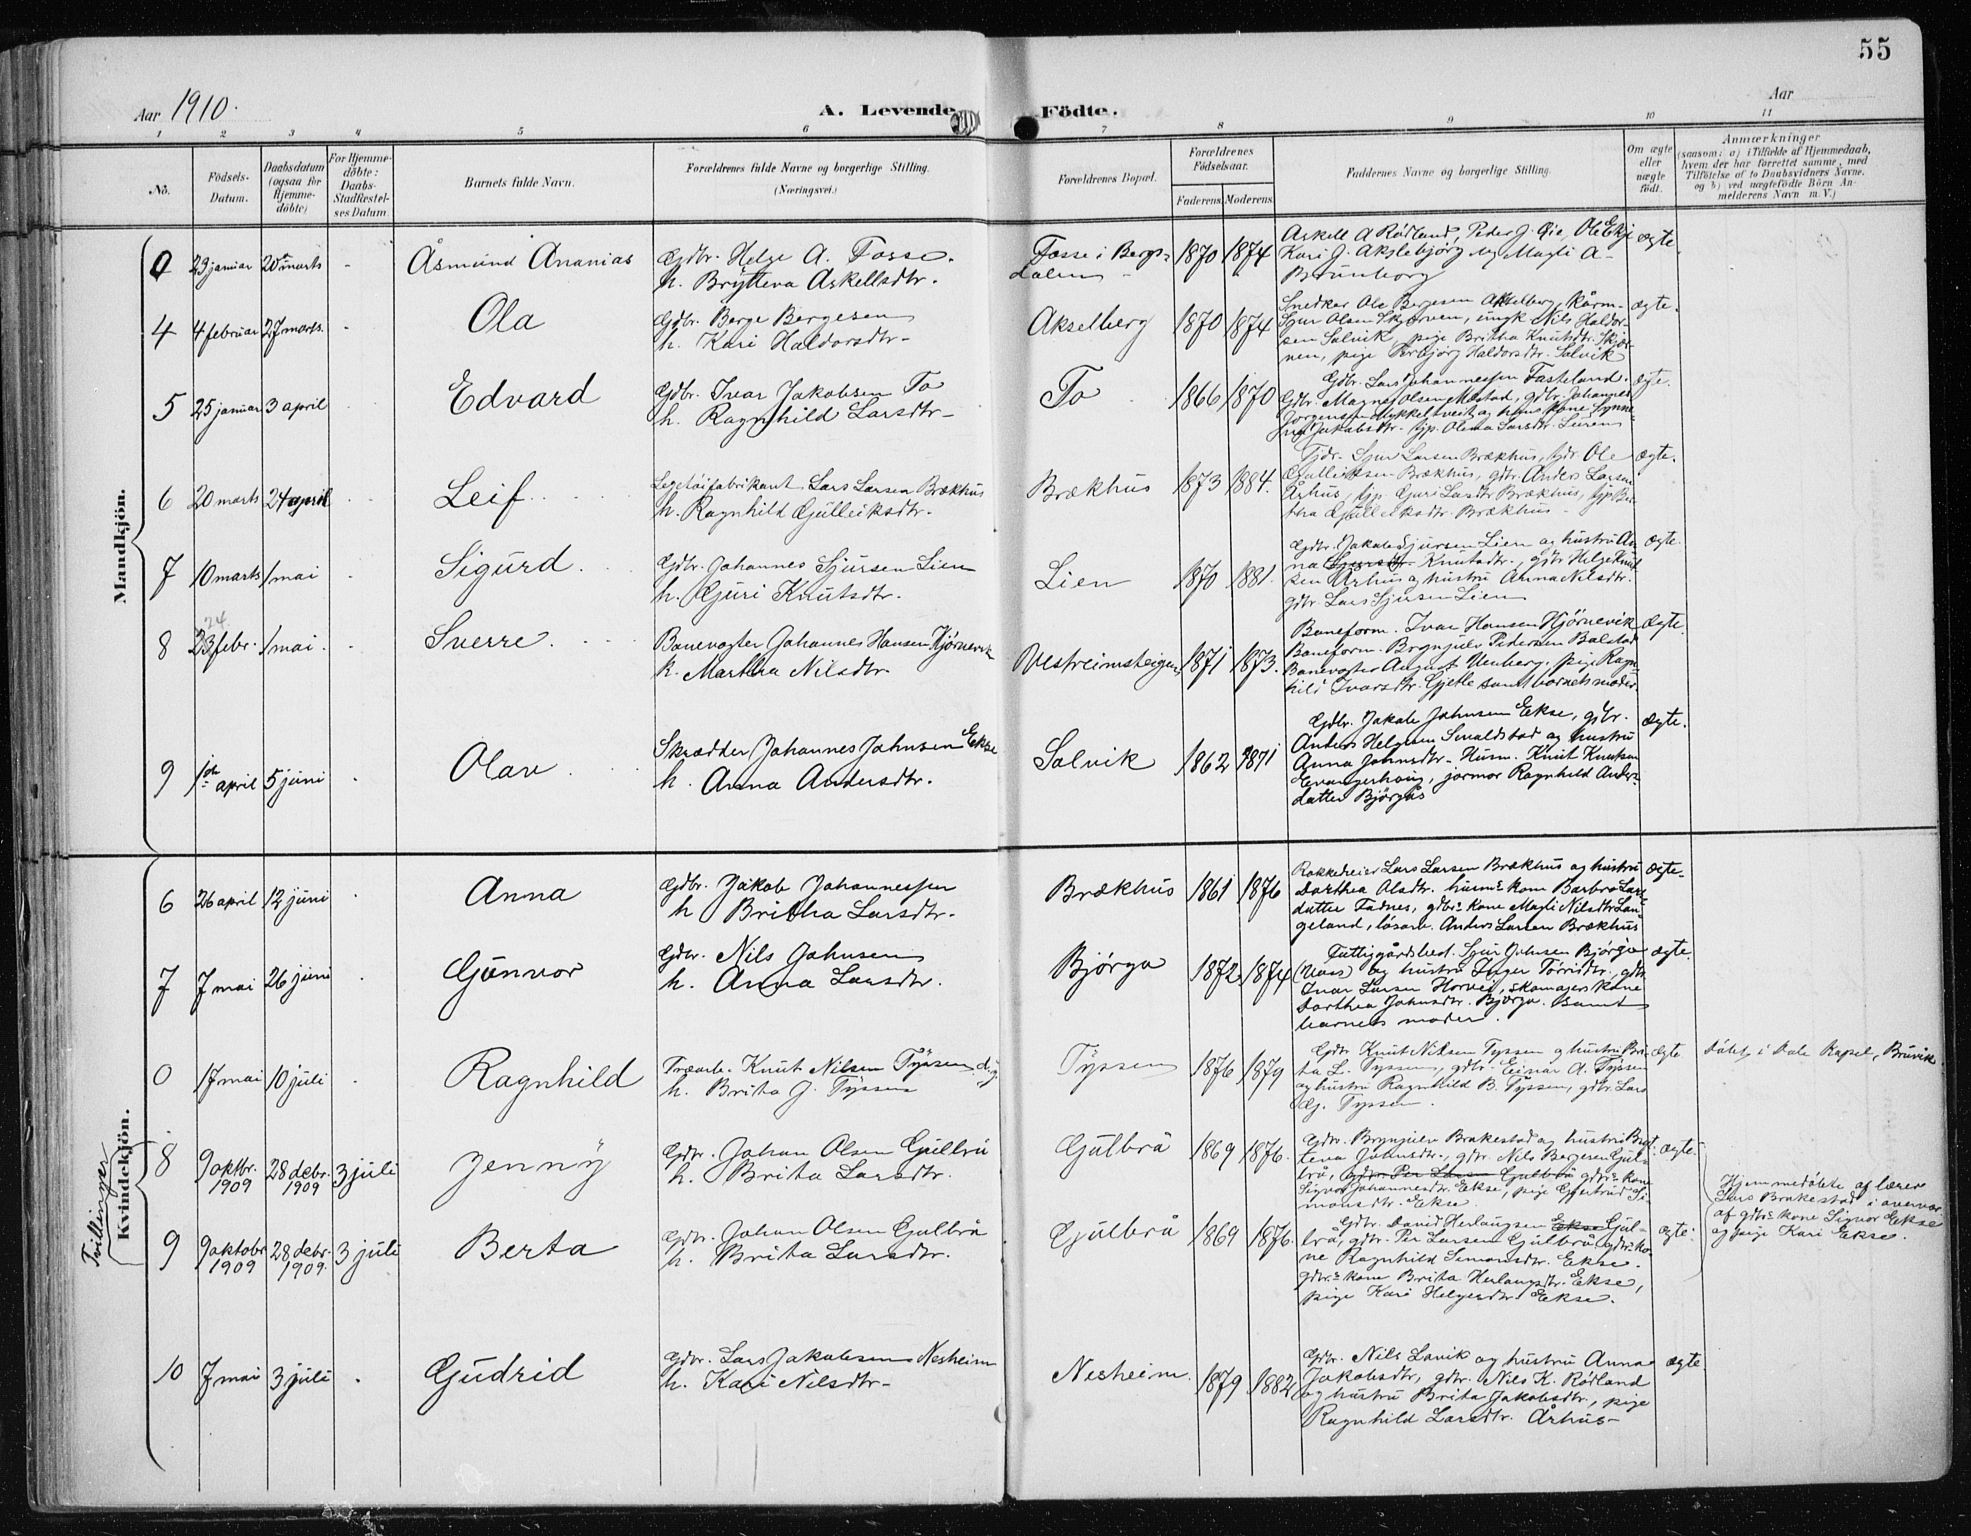 55
Aar 1910.
A. Levende Födte.
Aar
1 2 3 4 5 6 7 8 9 10 11
No.
Födsels-
Datum.
Daabsdatum
(ogsaa för
Hjemme-
döbte)
For Hjemme-
döbte:
Daabs-
Stadfæstel-
ses Datum.
Barnets fulde Navn.
Forældrenes fulde Navne og borgerlige Stilling.
(Næringsvei.)
Forældrenes Bopæl.
Forældrenes
Födselsaar.
Faderens. Moderens.
Faddernes Navne og borgerlige Stilling.
Om ægte
eller
uægte
födt.
Anmærkninger
(saasom: a) i Tilfælde af Hjemmedaab,
hvem der har forrettet samme, med
Tilföielse af to Daabsvidners Navne.
og b) ved uægtefödte Börn An-
melderens Navn m. V.)
Mandkjön.
0 29 januar 20 marts - Åsmund Ananias
Gdbr. Helge A. Fosse.
h. Brytteva Askellsdtr.
Fosse i Bergs-
dalen
1870 1874
Askell A Rødland, Peder J. Øie, Ole Ekje
Kari J. Akslebjörg og Magli A-
Brunborg
ægte.
4 4 februar 27 marts. - Ola
Gdbr. Berge Bergesen
h. Kari Haldorsdtr-
Akselberg 1870 1874
Snedker Ole Bergesen Akselberg,
Sjur Olsen Skjerven, ungk Nils Haldor-
sen Solvik, pige Britha Knutsdtr. Skjer-
ven, pige Haldorsdtr. Solvik
ægte.
5 25 januar 3 april Edvard
Gdbr. Ivar Jakobsen To
h. Ragnhild Larsdtr-
To 1866 1870
Gdbr. Lars Johannessen Fasteland.
Gdbr. Magne Olsen Mostad, gdbr. Johannes
Jørgensen Mykkeltveit og hans kone Synne-
Jakobsdtr. tjp. Olena Larsdtr.
ægte.
6 20 marts 24 april Leif
Legetöifabrikant Lars Larsen Brækhus
h. Ragnhild Gulleiksdtr.
Brækhus 1873 1884.
Sjur Larsen Brækhus, Ole
Gulleiksen Brækhus, gdbr. Anders Larsen
Århus, tjp. Guri Larsdtr Brækhus, tjp Bri-
tha Gulleiksdtr. Brækhus
ægte.
7 10 marts 1 mai - Sigurd
Gdbr. Johannes Sjursen Lien
h. Guri Knutsdtr.
Lien 1870 1881.
Gdbr. Jakob Sjursen Lien og hustru An-
na Knutsdtr., gdbr Helge Knut
sen Århus og hustru Anna Nilsdtr.
gdbr. Lars Sjursen Lien
ægte.
24
8 23 febr. 1 mai. - Sverre.
Banevogter Johannes Hansen Kjørnevik
h. Martha Nilsdtr
Vestreimsteigen 1871 1873.
Baneform. Ivar Hansen Hjørnevik
Baneform. Brynjulv Pedersen Bolstad
Banevogter August Venberg, pige Ragn-
hild Ivarsdtr. Gjetle samt barnets moder.
ægte.
9 1 april 5 juni - Olav
Skrædder Johannes Johnsen Ekse
h. Anna Andersdtr.
Solvik 1862 1871
Gdbr. Jakob Johnsen Ekse, gdbr.
Anders Helgesen Smaldstad og hustru
Anna Johnsdtr. Husm. Knut Knutsen
Evangerhaug, jormor Ragnhild Anders-
datter Bjørgås
ægte.
Kvindekjön.
6 26 april 12 juni - Anna
Gdbr. Jakob Johannessen
h Britha Larsdtr.
Brækhus 1861 1876
Rokkedreier Lars Larsen Brækhus og hustru
Dorthea Olsdtr. husm's kone Barbro Lars-
datter Fadnes, gdbr's kone Magli Nilsdtr Lan-
geland, løsarb. Anders Larsen Brækhus
ægte-
7 7 mai 26 juni - Gunvor
Gdbr. Nils Johnsen
h. Anna Larsdtr.
Bjørgo 1872 1874
Fattiggårdsbest. Sjur Johnsen Bjørgo
(Voss) og hustru Inger gdbr
Ivar Larsen Horvei, skomagers kone
Dorthea Johnsdtr. Bjørgo. samt
barnets moder.
ægte.
0 17 mai 10 juli Ragnhild
Træarb. Knut Nilsen Tyssen d.y.
h. Brita J. Tyssen
Tyssen 1876 1879
Gdbr. Knut Nilsen Tyssen og hustru Bri-
ta L. Tyssen, gdbr. Einar A. Tyssen
og hustru Ragnhild B. Tyssen, gdbr. Lars
G. Tyssen.
ægte
Døbt i Dale Kapel, Bruvik
Tvillinger
8 9 oktbr. 1909 28 debr. 1909 3 juli Jenny
Gdbr. Johan Olsen Gulbrå
h. Brita Larsdtr.
Gulbrå 1869 1876.
Gdbr. Brynjulv Brakestad og hustru Bryt-
teva Johnsdtr., gdbr. Nils Bergesen Gul-
brå, gdbr. Per Larsen Gulbrå gdbr's kone
Signor Johannesdtr. Ekse, pige Gjertrud Si-
monsdtr. Ekse
ægte.
9 9 oktobr 1909 28 debr. 1909. 3 juli Berta
Gdbr. Johan Olsen Gulbrå
h. Brita Larsdtr.
Gulbrå 1869 1876.
Gdbr. David Herlaugsen Ekse Gul-
brå, gdbr. Per Larsen Gulbrå, gdbr's ko-
ne Ragnhild Simonsdtr. Ekse.
gdbr's kone Brita Herlaugsdtr. Ekse,
pige Kari Helgesdtr. Ekse.
ægte.
Hjemmedöbte af lærer
Lars Brakestad i overvær
af gdbr's kone Signor Ekse
og pige Kari Ekse.
10 7 mai 3 juli - Gudrid
Gdbr. Lars Jakobsen Nesheim
h. Kari Nilsdtr-
Nesheim. 1879 1882
Gdbr. Nils Lavik og hustru Anna
Jakobsdtr, gdbr. Nils K. Rödland
og hustru Brita Jakobsdtr., pige
Ragnhild Larsdtr. Århus-
ægte